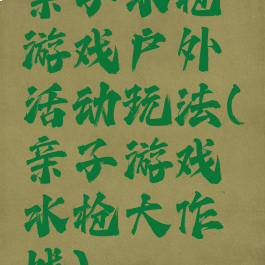 亲子水枪
游戏户外
活动玩法(
亲子游戏
水枪大作
战)